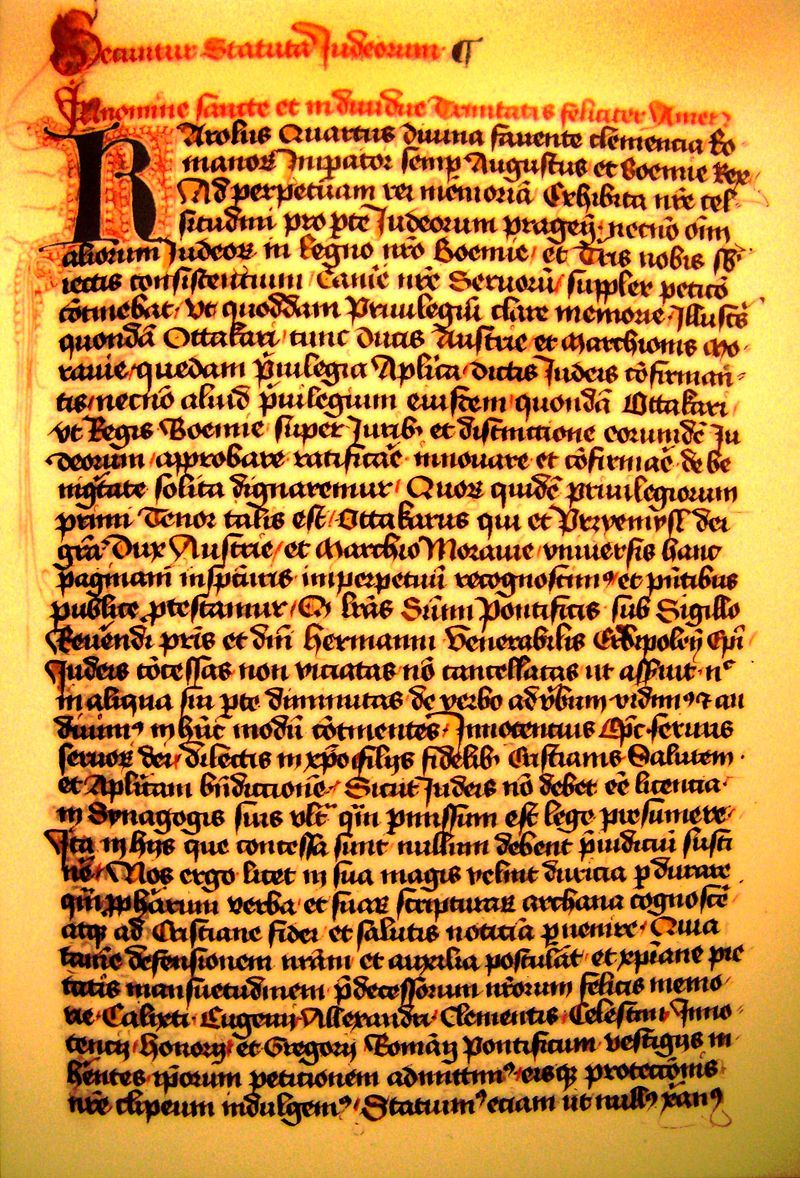 Secuntur Statuta Judeorum ¶
In nomine sancte et individue Trinitatis feliciter Amen
Karolus Quartus divina favente clemencia Ro-
manoꝝ Imperator semp Augustus et Boemie Rex
Ad perpetuam rei memoriā Exhibita nr̄e cel-
situdini pro pte Judeorum pragen necnō oīm
aliorum Judeoꝝ in Regno nr̄o Boemie et Tris nobis sb-
iectis consistentium Camē nr̄e Servorū supplex peticō
cōtinebat Vt quoddam Privilegiū clare memorie Illustris
quondā Ottakari tunc ducis Austrie et Marchionis Mo-
ravie quedam pͥvilegia Aplica dictis Judeis cōfirman-
tis necnō aliud pͥvilegium eiusdem quondā Ottakari
vt Regis Boemie super Jurib et distinctione eorumdē Ju
deorum approbare ratificāē innovare et cōfirmāē de be
nigtate solita dignaremur Quoꝝ quidē privilegiorum
primi Tenor talis est Ottakarus qui et Przyemysl dei
grā Dux Austrie et Marchio Moravie vniversis hanc
paginam inspturis imperpetuū recognoscimꝰ et pn̄tibus
publice ptestamur Q lrās Sūmi Pontificis sub Sigillo
Revendi pris et dn̄i Hermanni Venerabilis Erbipoleñ Ep̄i
Judeis cōcessas non viciatas nō cancellatas ut assuit nᶜ
in aliqua sui pte diminutas de verbo ad vbum vidimꝰ et au
divimꝰ in hūc modū cōtinentes Innocentius Ep̄c servus
servoꝝ dei dilectis in xp̄o filijs fidelib Cristianis Salutem
et Aplicam bn̄dictionē Sicut Judeis nō debet eē licencia
in Synagogis suis vltͣ qͣm pmissum est lege presumere
Ita in hijs que concessa sunt nullum debent pͥiudiciū susti
nē Nos ergo licet in sua magis velint duricia pdurare
qͣm pphārum verba et suaꝝ scripturaꝝ archana cognoscē
atqꝫ ad Cristiane fidei et salutis noticiā pvenire Quia
tamē defensionem nrām et auxilia postulāt et xp̄iane pie
tatis mansuetudinem pͤdecessorum nr̄orum felicis memo-
rie Calixti Eugenij Allexandri Clementis Celestini Inno-
cencij Honorij et Gregorij Romañ Pontificum vestigijs in
hentes ip̄orum peticionem admittimꝰ eisqꝫ protectōnis
nr̄e clipeum indulgemꝰ Statuimꝰ eciam ut nullꝰ xānꝰ